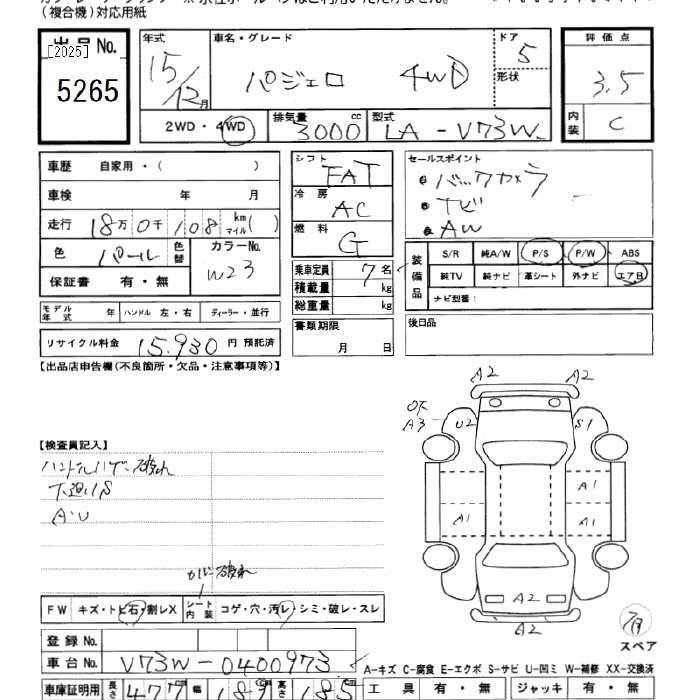 (複合機)対応用紙
出品No.
[2025]
5265
年式
15/12月
車名・グレード
パジェロ 4WD
ドア 5
形状
評価点
3.5
内装 C
2WD・4WD
排気量 3000 cc
型式 LA-V73W
車歴 自家用・( )
車検 年 月
走行 18万0千108 km マイル( )
色 パール 色替
カラーNo. W23
保証書 有・無
シフト FAT
冷房 AC
燃料 G
乗車定員 7名
積載量 kg
総重量 kg
セールスポイント
・バックカメラ
・ナビ
・AW
装備品
S/R 純A/W P/S P/W ABS
純TV 純ナビ 革シート 外ナビ エアB
ナビ型番:
モデル年式 年 ハンドル 左・右 ディーラー・並行
書類期限
月 日
後日品
リサイクル料金 15,930 円 預託済
【出品店申告欄(不良箇所・欠品・注意事項等)】
A2 A2
A3 U2 S1
A1
A1 A1
A2
A2
【検査員記入】
ハンドルハゲ、破れ
下廻りS
A・U
カバー破れ
FW キズ・トビ石・割レX
シート内装 コゲ・穴・汚レ・シミ・破レ・スレ
スペア
登録No.
車台No. V73W-0400973
A-キズ C-腐食 E-エクボ S-サビ U-凹ミ W-補修 XX-交換済
車庫証明用 長さ 477 幅 189 高さ 185
工具 有・無 ジャッキ 有・無